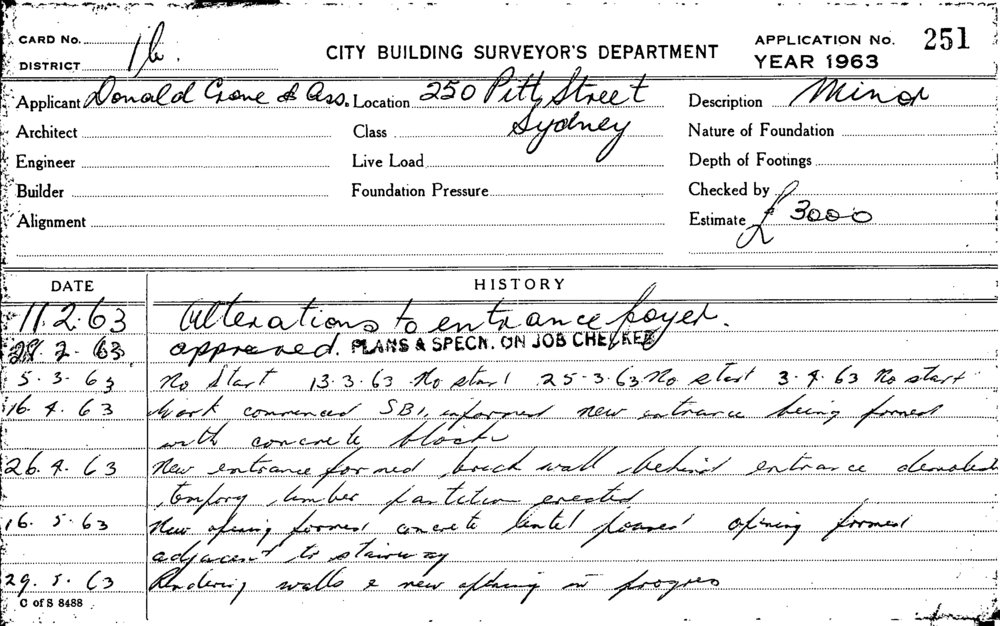 CARD No. 1b. CITY BUILDING SURVEYOR'S DEPARTMENT APPLICATION No. 251
DISTRICT YEAR 1963
Applicant Donald Crone & Ass. Location 250 Pitt Street Description Minor
Architect Class Sydney Nature of Foundation
Engineer Live Load Depth of Footings
Builder Foundation Pressure Checked by
Alignment Estimate £ 3000
DATE HISTORY
11.2.63 Alterations to entrance foyer.
28.2.63 approved. PLANS & SPECN. ON JOB CHECKED
5.3.63 No start 13.3.63 No start 25-3-63 No start 3.4.63 No start
16.4.63 Work commenced SBI, informed new entrance being formed
with concrete block
26.4.63 New entrance formed brick wall behind entrance demolished
tempory timber partition erected
16.5.63 New opening formed concrete lintel poured opening formed
adjacent to stairway
29.5.63 Rendering walls & new opening in progress
C of S 8488